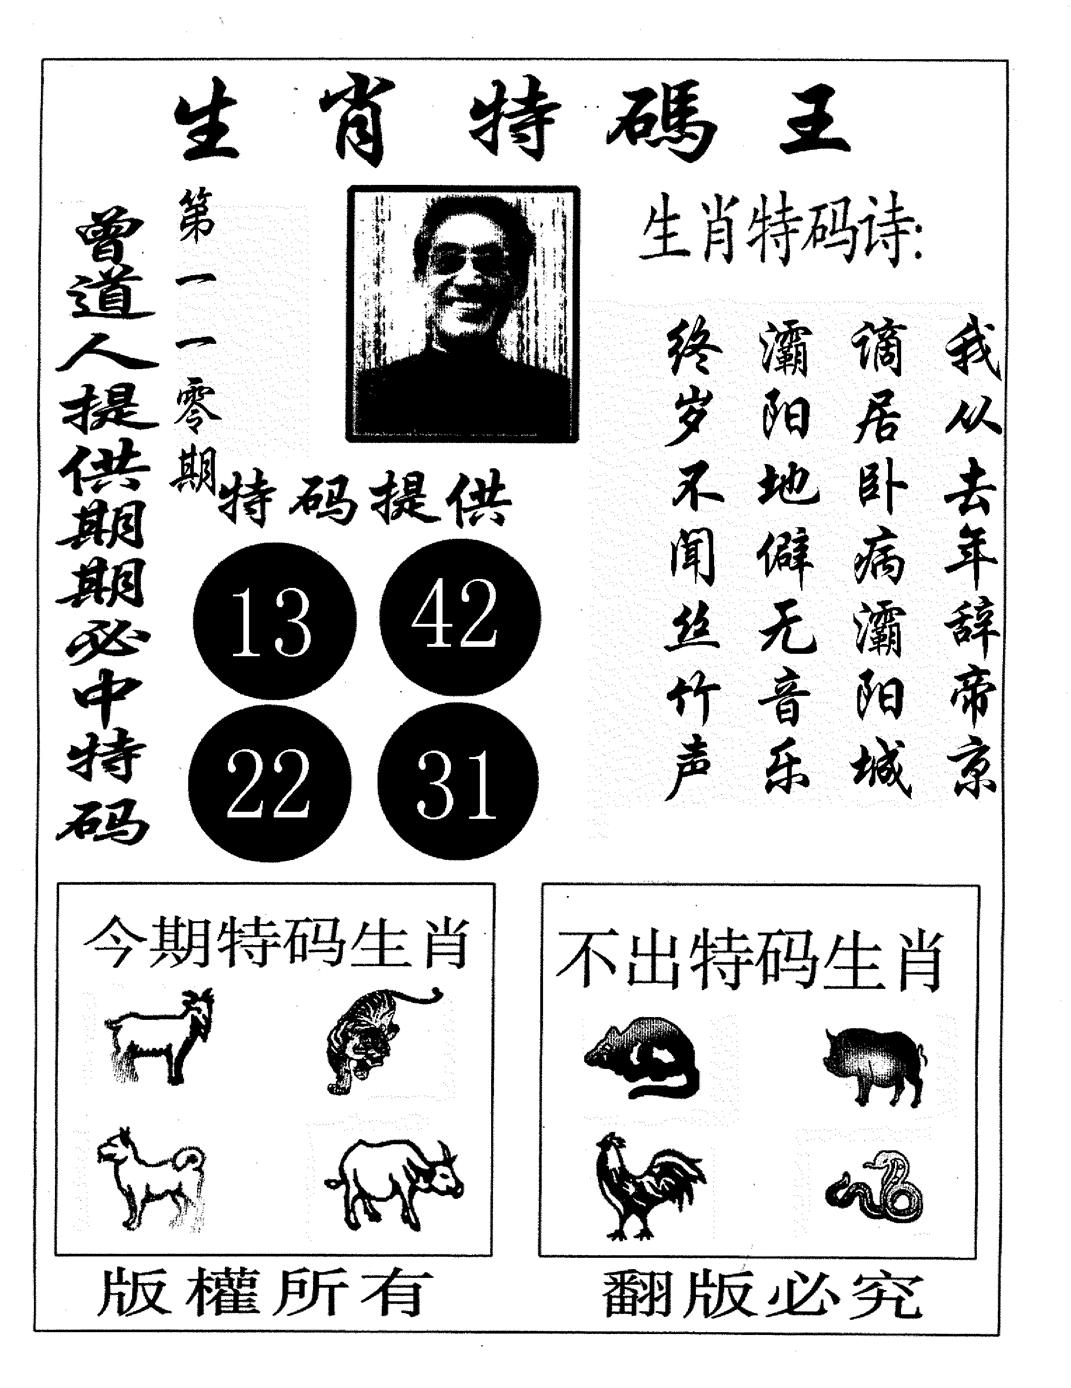 生肖特碼王
曾道人提供期期必中特码
第一一零期
特码提供
13 42
22 31
生肖特码诗:
我从去年辞帝京
谪居卧病灞阳城
灞阳地僻无音乐
终岁不闻丝竹声
今期特码生肖
不出特码生肖
版權所有
翻版必究